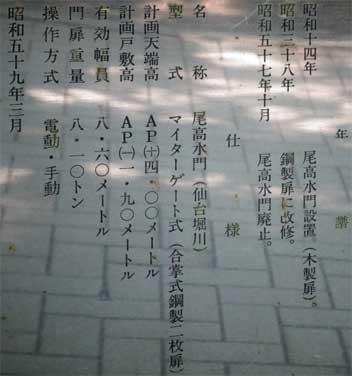 年譜
昭和十四年 尾高水門設置(木製扉)。
昭和三十八年 鋼製扉に改修。
昭和五十七年十月 尾高水門廃止。
仕様
名称 尾高水門(仙台堀川)
型式 マイターゲート式(合掌式鋼製二枚扉)
計画天端高 AP(+)四・〇〇メートル
計画戸敷高 AP(-)一・九〇メートル
有効幅員 八・六〇メートル
門扉重量 八・一〇トン
操作方式 電動・手動
昭和五十九年三月